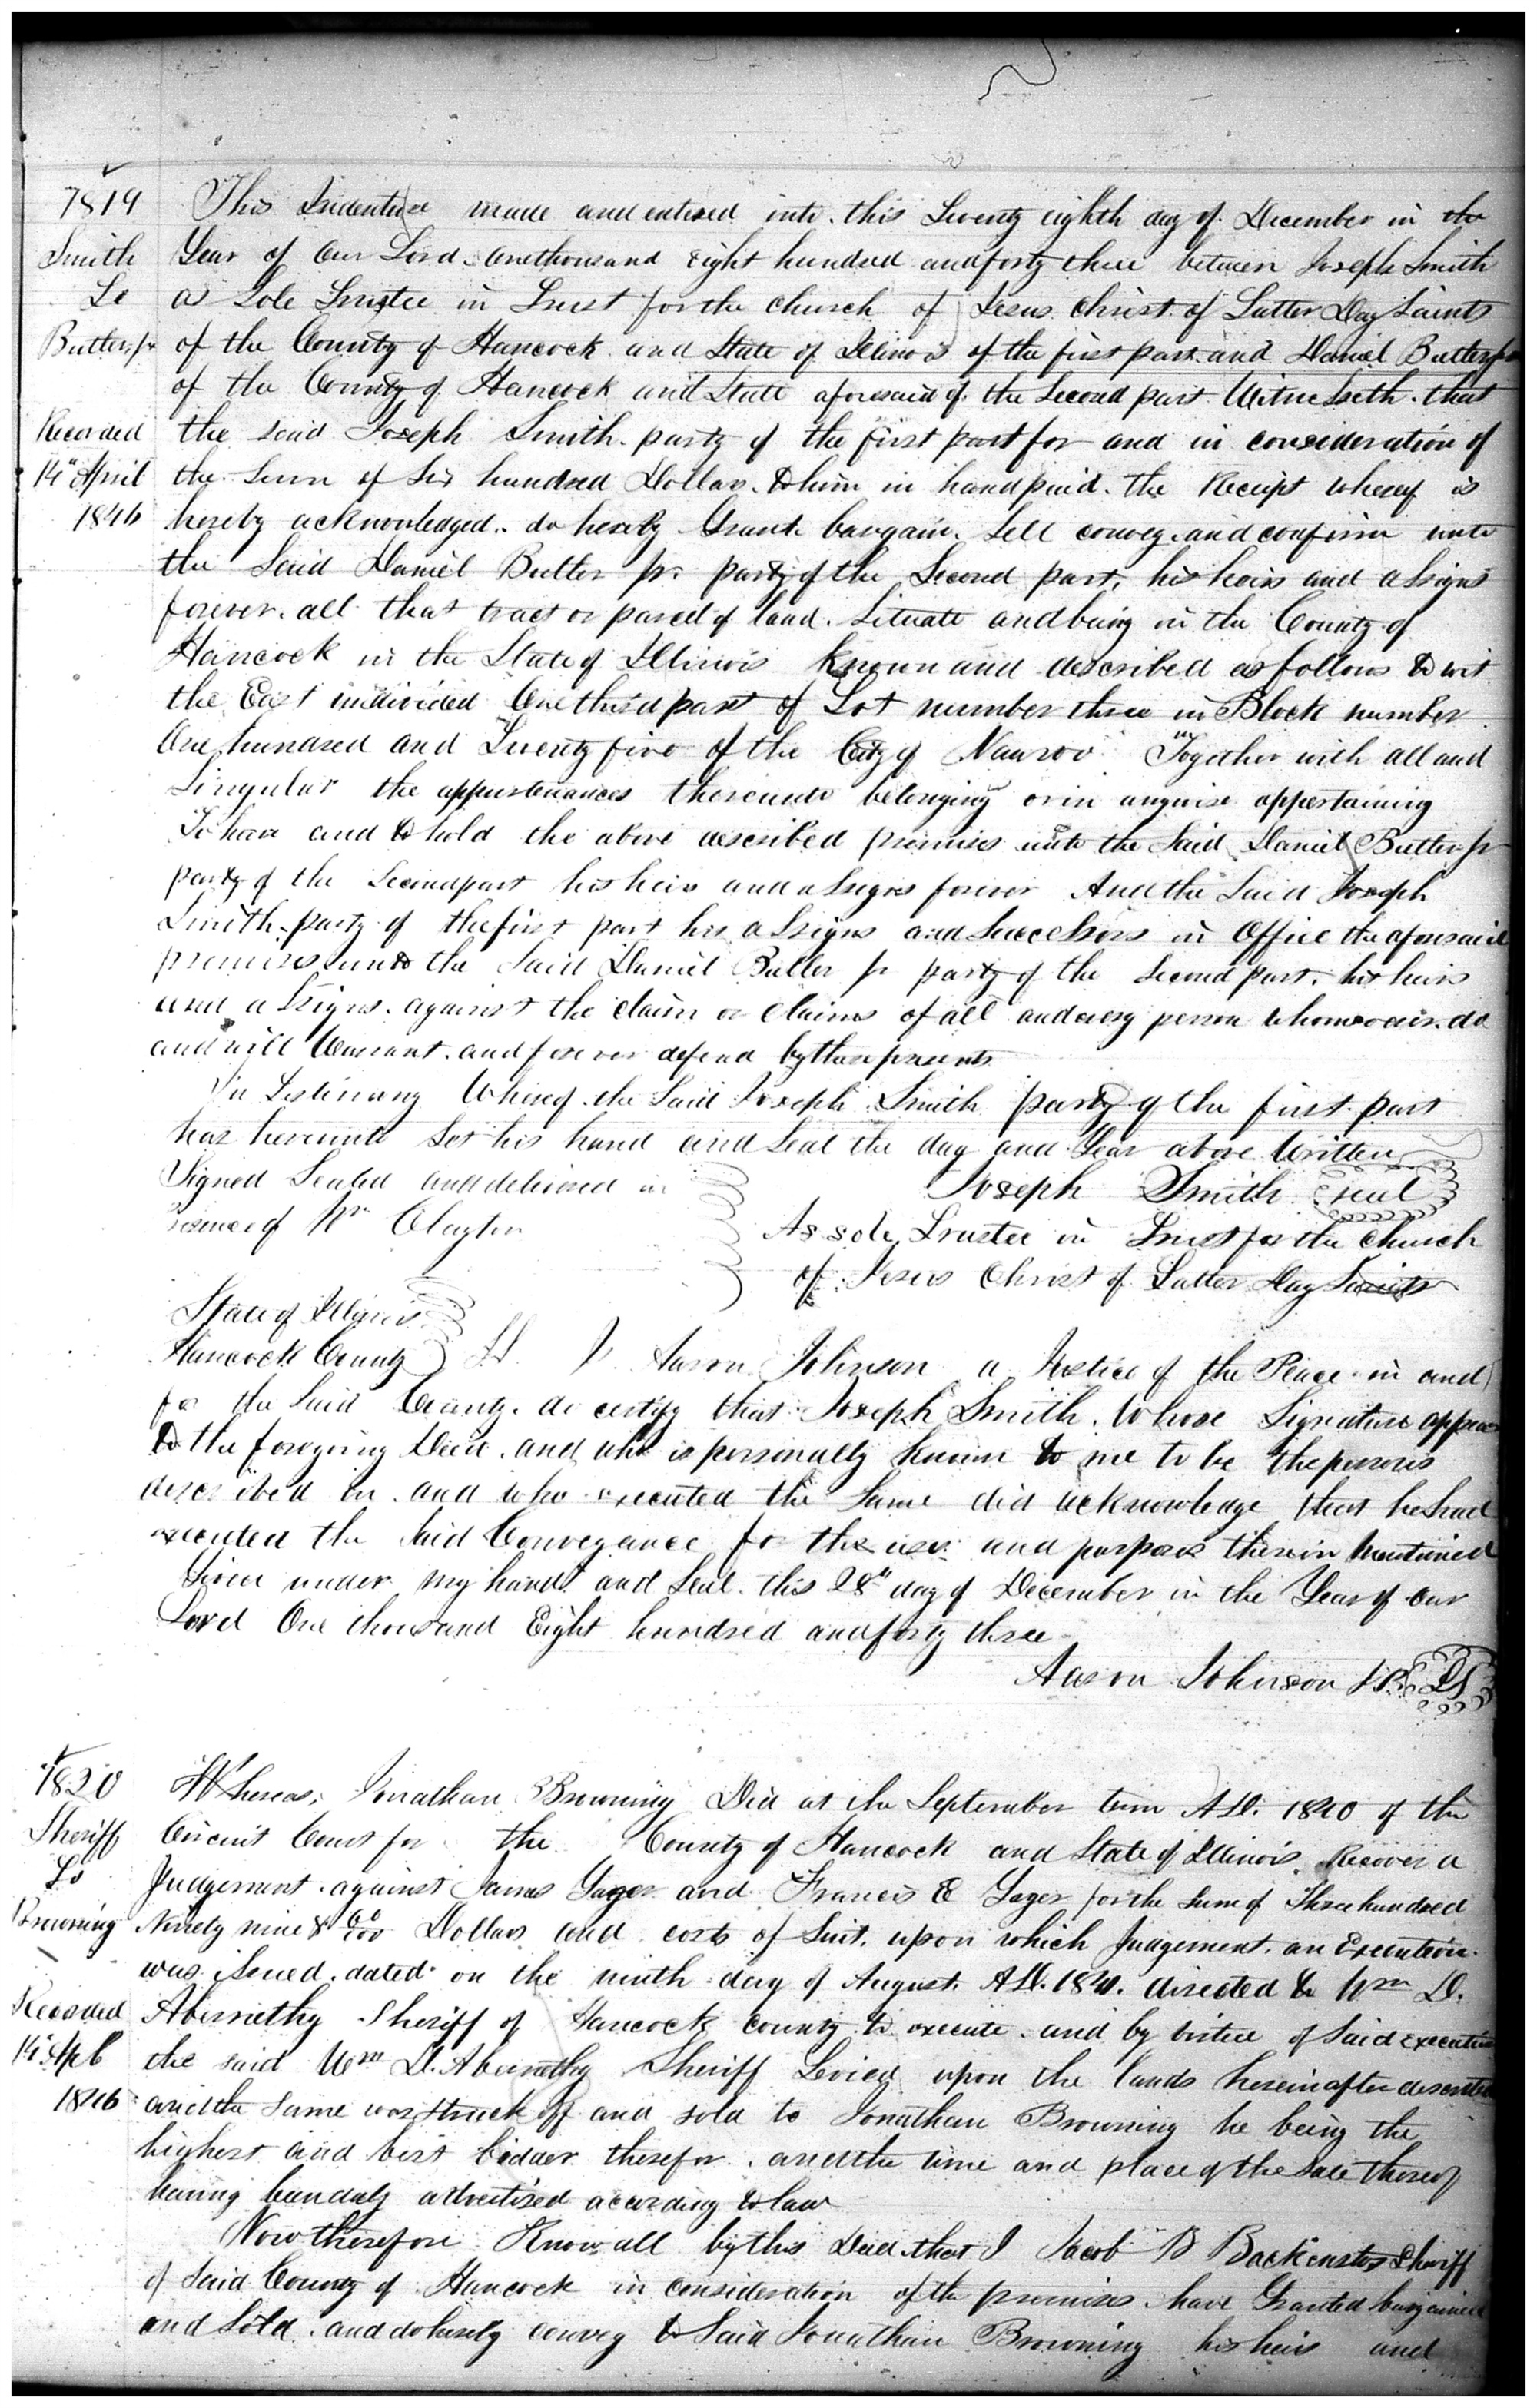 7819
Smith
To
Butler jr
Recorded
14" April
1846
This Indenture made and entered into this Twenty eighth day of December in the
Year of Our Lord One thousand Eight hundred and forty three between Joseph Smith
as sole Trustee in Trust for the Church of Jesus Christ of Latter Day Saints
of the County of Hancock and State of Illinois of the first part and Daniel Butler jr
of the County of Hancock and State aforesaid of the Second part Witnesseth that
the said Joseph Smith party of the first part for and in consideration of
the Sum of Six hundred Dollars to him in hand paid the Receipt whereof is
hereby acknowledged do hereby Grant bargain Sell convey and confirm unto
the Said Daniel Butler jr. party of the Second part, his heirs and assigns
forever. all that tract or parcel of land. Situate and being in the County of
Hancock in the State of Illinois known and described as follows to wit
the East undivided One third part of Lot number three in Block number
One hundred and Twenty five of the City of Nauvoo Together with all and
Singular the appurtenances thereunto belonging or in anywise appertaining
To have and to hold the above described premises unto the Said Daniel Butler jr
party of the Second part his heirs and assigns forever And the Said Joseph
Smith party of the first part his assigns and Successors in Office the aforesaid
premises unto the Said Daniel Butler jr party of the Second part, his heirs
and assigns. against the claim or claims of all and every person whomsoever. do
and will Warrant. and forever defend by these presents
In Testimony Whereof the Said Joseph Smith party of the first part
has hereunto Set his hand and Seal the day and Year above Written
Signed Sealed and delivered in
presence of Wm Clayton
Joseph Smith seal
As sole Trustee in Trust for the Church
of Jesus Christ of Latter Day Saints
State of Illinois
Hancock County SS. I. Aaron Johnson a Justice of the Peace in and
for the Said County. do certify that Joseph Smith. Whose Signature appears
to the foregoing Deed. and who is personally known to me to be the person
described in. and who executed the Same did acknowledge that he had
executed the Said Conveyance for the uses and purposes therein Mentioned
Given under my hand and Seal this 28th day of December in the Year of our
Lord One thousand Eight hundred and forty three
Aaron Johnson J.P. LS
7820
Sheriff
To
Browning
Recorded
14" Apl
1846
Whereas, Jonathan Browning Did at the September term A.D. 1840 of the
Circuit Court for the County of Hancock and State of Illinois. Recover a
Judgement. against James Yager and Francis E Yager for the Sum of Three hundred
Ninety nine & 60/100 Dollars and costs of Suit. upon which Judgement. an Execution
was issued. dated on the ninth day of August. A.D. 1841. directed to Wm D.
Abernethy Sheriff of Hancock County to execute. and by virtue of Said execution
the said Wm D. Abernethy Sheriff Levied upon the lands hereinafter described
and the Same was Struck off and sold to Jonathan Browning he being the
highest and best bidder therefor. and the time and place of the Sale thereof
having been duly advertised according to law
Now therefore Know all by this Deed that I Jacob B Backenstos Sheriff
of Said County of Hancock in consideration of the premises. have Granted bargained
and Sold. and do hereby convey to Said Jonathan Browning his heirs and